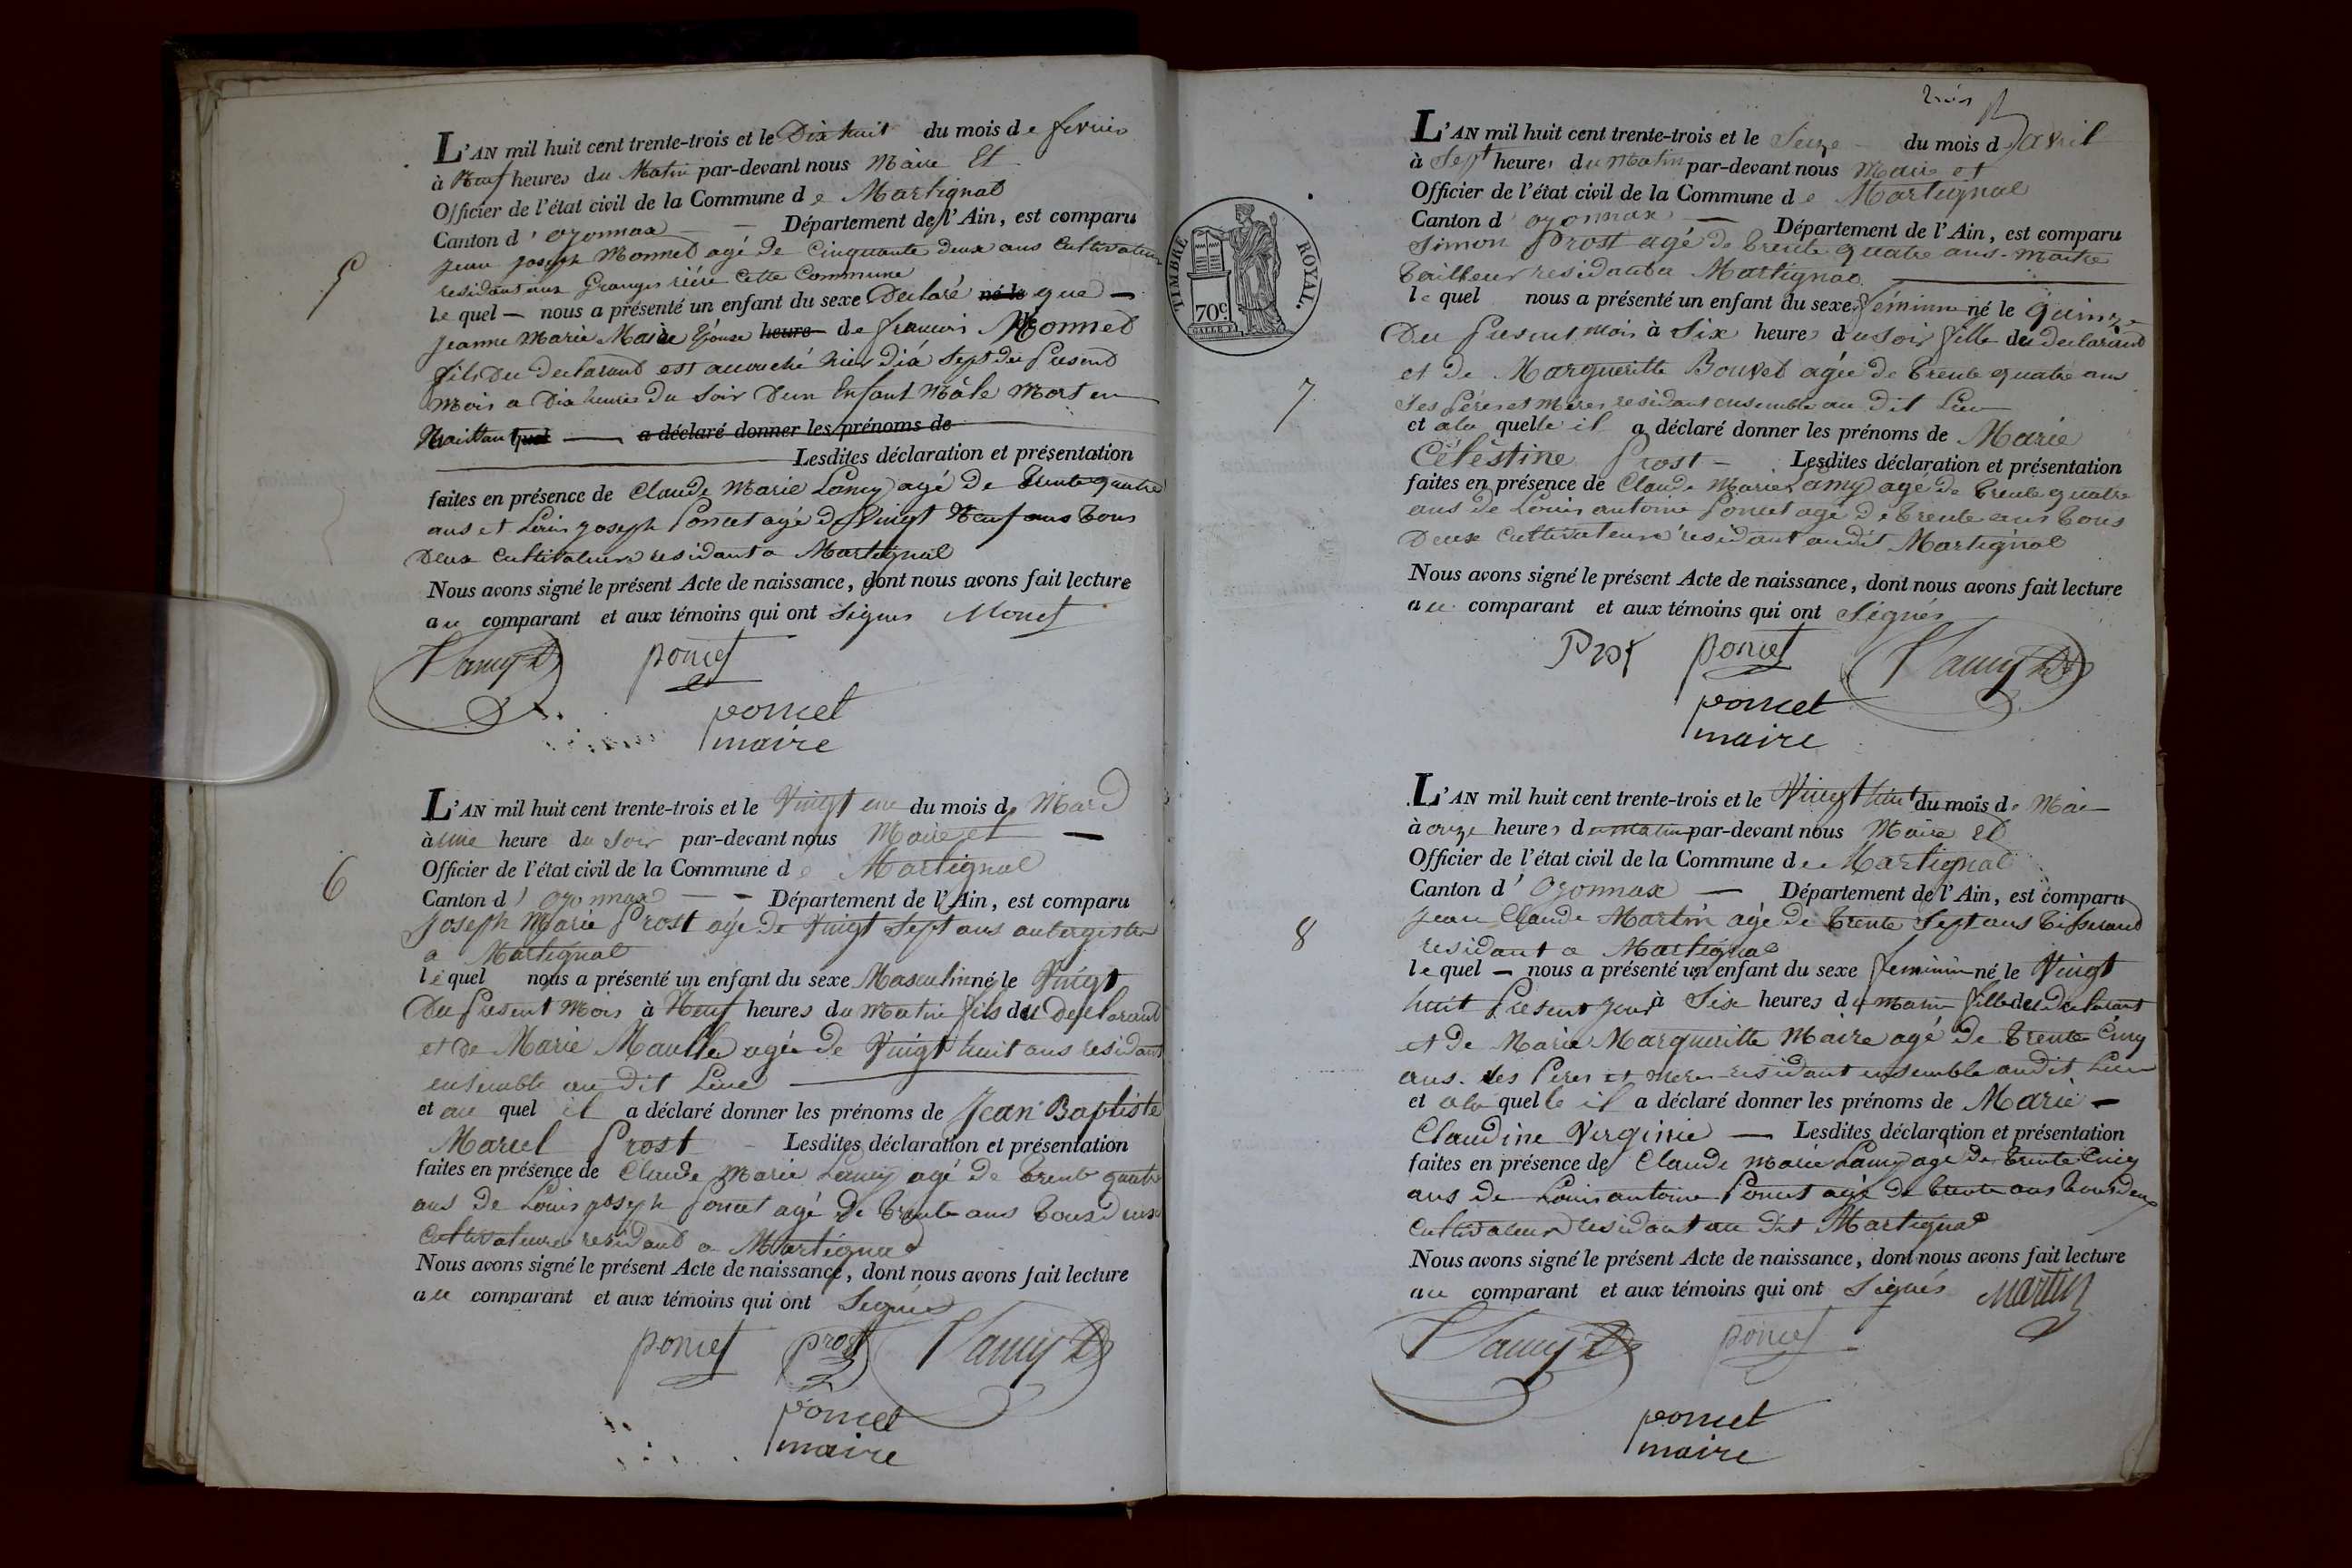 5
L'AN mil huit cent trente-trois et le Dix huit du mois de fevrier
à Neuf heures du Matin par-devant nous Maire Et
Officier de l'état civil de la Commune de Martignat
Canton d'oyonnax — Département de l'Ain, est comparu
jean joseph Monnet agé de Cinquante deux ans Cultivateur
residant aux Granges riére Cette Commune
le quel — nous a présenté un enfant du sexe Declaré né le que —
jeanne Marie Maire Epouse heure de francois Monnet
fils Du declarant est accouché hier dix Sept du present
Mois a Dix heures du Soir Dun Enfant Mâle Mort en
Naissant quel — a déclaré donner les prénoms de
Lesdites déclaration et présentation
faites en présence de Claude Marie Lamy agé de trente quatre
ans et Louis joseph Poncet agé de Vingt Neuf ans tous
Deux Cultivateurs residant a Martignat
Nous avons signé le présent Acte de naissance, dont nous avons fait lecture
au comparant et aux témoins qui ont Signés Monet
Lamy
poncet
poncet
maire
6
L'AN mil huit cent trente-trois et le Vingt une du mois de Mars
à une heure du Soir par-devant nous Maire et —
Officier de l'état civil de la Commune de Martignat
Canton d'oyonnax — Département de l'Ain, est comparu
joseph Marie Prost agé de Vingt Sept ans aubergiste
a Martignat
le quel nous a présenté un enfant du sexe Masculin né le Vingt
Du present Mois à Neuf heures du Matin fils du Declarant
et de Marie agée de Vingt huit ans residant
ensemble au dit Lieu
et au quel il a déclaré donner les prénoms de Jean Baptiste
Marcel Prost — Lesdites déclaration et présentation
faites en présence de Claude Marie Lamy agé de trente quatre
ans de Louis joseph Poncet agé de trente ans tous Deux
Cultivateurs residant a Martignat
Nous avons signé le présent Acte de naissance, dont nous avons fait lecture
au comparant et aux témoins qui ont Signés
poncet prost Lamy
poncet
maire
trois
TIMBRE ROYAL.
70c
7
L'AN mil huit cent trente-trois et le Seize du mois d'avril
à Sept heures du Matin par-devant nous Maire et
Officier de l'état civil de la Commune de Martignat
Canton d'oyonnax — Département de l'Ain, est comparu
Simon Prost agé de trente quatre ans maitre
tailleur residant a Martignat
le quel nous a présenté un enfant du sexe feminin né le Quinze
Du present mois à Six heures du Soir fille du declarant
et de Margueritte Bouvet agée de trente quatre ans
Ses Péres et Méres residant ensemble au dit Lieu
et a la quelle il a déclaré donner les prénoms de Marie
Célèstine Prost — Lesdites déclaration et présentation
faites en présence de Claude Marie Lamy agé de trente quatre
ans de Louis antoine Poncet agé de trente ans tous
Deux Cultivateurs residant au dit Martignat
Nous avons signé le présent Acte de naissance, dont nous avons fait lecture
au comparant et aux témoins qui ont Signés
Prost poncet Lamy
poncet
maire
8
L'AN mil huit cent trente-trois et le Vingt huit du mois de Mai
à onze heures du matin par-devant nous Maire et
Officier de l'état civil de la Commune de Martignat
Canton d'Oyonnax — Département de l'Ain, est comparu
jean Claude Martin agé de trente Sept ans tisserand
residant a Martignat
le quel — nous a présenté un enfant du sexe feminin né le Vingt
huit Present jour à Six heures du matin fille du declarant
et de Marie Margueritte Maire agé de trente Cinq
ans. Ses Peres et meres residant ensemble au dit Lieu
et a la quelle il a déclaré donner les prénoms de Marie —
Claudine Virginie — Lesdites déclaration et présentation
faites en présence de Claude Marie Lamy agé de trente Cinq
ans de Louis antoine Poncet agé de trente ans tous deux
Cultivateurs residant au dit Martignat
Nous avons signé le présent Acte de naissance, dont nous avons fait lecture
au comparant et aux témoins qui ont Signés Martin
Lamy poncet
poncet
maire